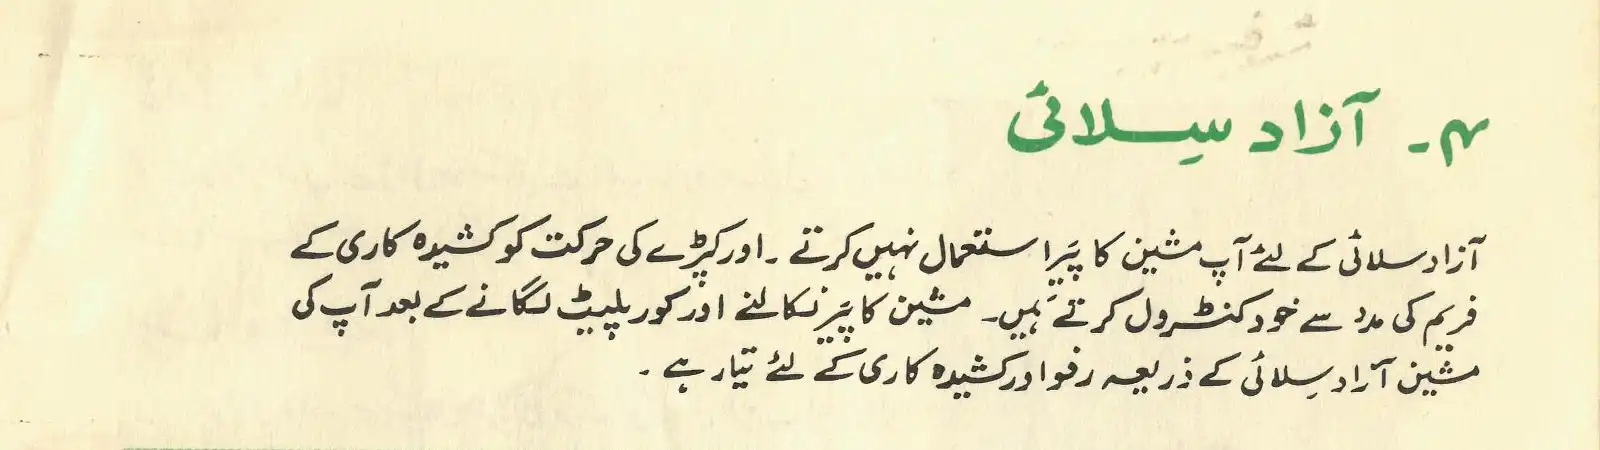 ۴۔ آزاد سِلائی
آزاد سلائی کے لئے آپ مشین کا پَیر استعمال نہیں کرتے ۔ اور کپڑے کی حرکت کو کشیدہ کاری کے
فریم کی مدد سے خود کنٹرول کرتے ہَیں۔ مشین کا پَیر نکالنے اور کور پلیٹ لگانے کے بعد آپ کی
مشین آزاد سِلائی کے ذریعہ رفو اور کشیدہ کاری کے لئے تیّار ہے ۔